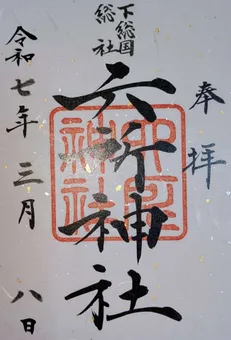 奉拝
下総国
総社
六所神社
令和七年三月八日